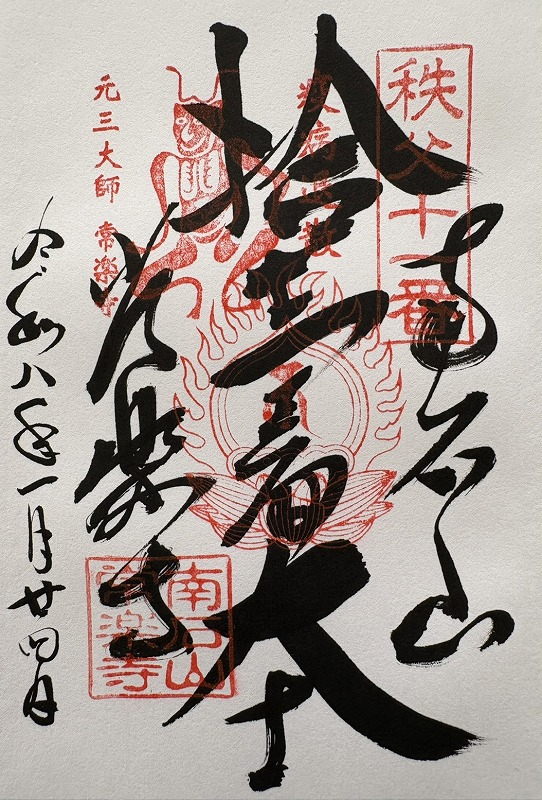 秩父十一番
南石山
疫病退散
拾一面大士
常楽寺
元三大師 常楽寺
南石山
常楽寺
令和八年一月廿四日